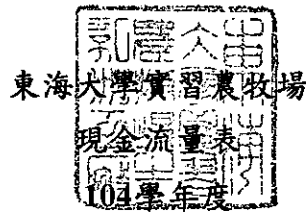 東海大學實習農牧場
現金流量表
104學年度